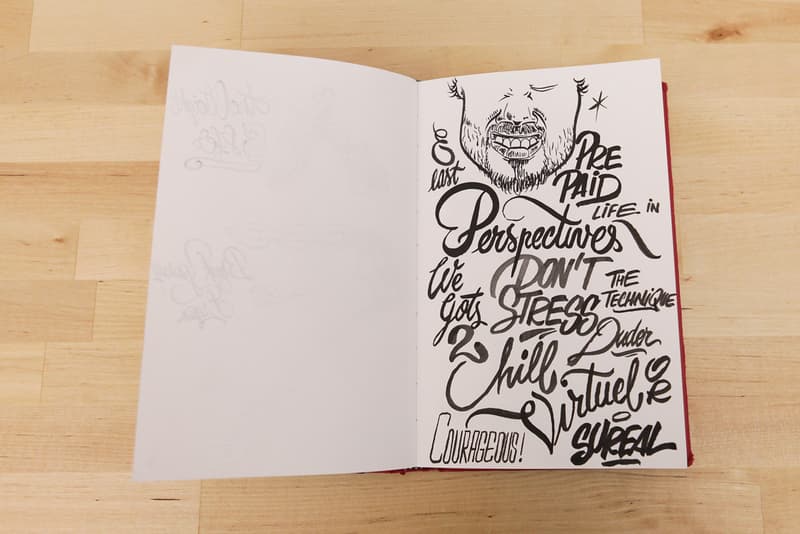 East
PRE
PAID
LIFE in
Perspectives
We
gots
2
Chill
DON'T
STRESS
THE
TECHNIQUE
Duder
Virtuel
SUREAL
COURAGEOUS!